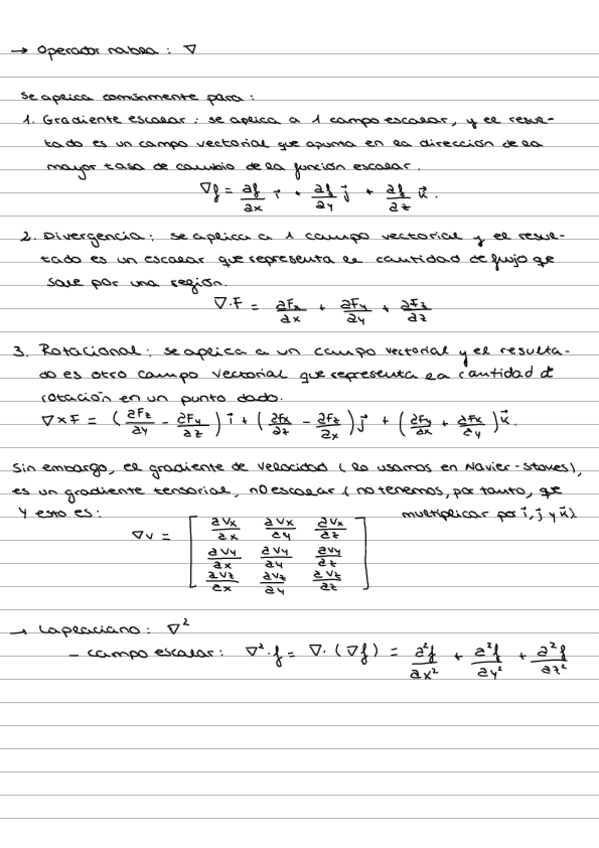 → Operador nabla : ∇
Se aplica comúnmente para :
1. Gradiente escalar : se aplica a 1 campo escalar, y el resul-
tado es un campo vectorial que apunta en la dirección de la
mayor tasa de cambio de la función escalar.
∇f = ∂f/∂x i⃗ + ∂f/∂y j⃗ + ∂f/∂z k⃗.
2. Divergencia : se aplica a 1 campo vectorial y el resul-
tado es un escalar que representa la cantidad de flujo qe
sale por una región.
∇·F = ∂Fx/∂x + ∂Fy/∂y + ∂Fz/∂z
3. Rotacional : se aplica a un campo vectorial y el resulta-
do es otro campo vectorial que representa la cantidad d
rotación en un punto dado.
∇×F = (∂Fz/∂y - ∂Fy/∂z) i⃗ + (∂Fx/∂z - ∂Fz/∂x) j⃗ + (∂Fy/∂x + ∂Fx/∂y) k⃗.
Sin embargo, el gradiente de velocidad (lo usamos en Navier-Stokes),
es un gradiente tensorial, no escalar (no tenemos, por tanto, que
multiplicar por i⃗, j⃗ y k⃗)
Y esto es :
∇v = [ ∂Vx/∂x ∂Vx/∂y ∂Vx/∂z
∂Vy/∂x ∂Vy/∂y ∂Vy/∂z
∂Vz/∂x ∂Vz/∂y ∂Vz/∂z ]
→ Laplaciano : ∇²
- campo escalar : ∇²·f = ∇·(∇f) = ∂²f/∂x² + ∂²f/∂y² + ∂²f/∂z²